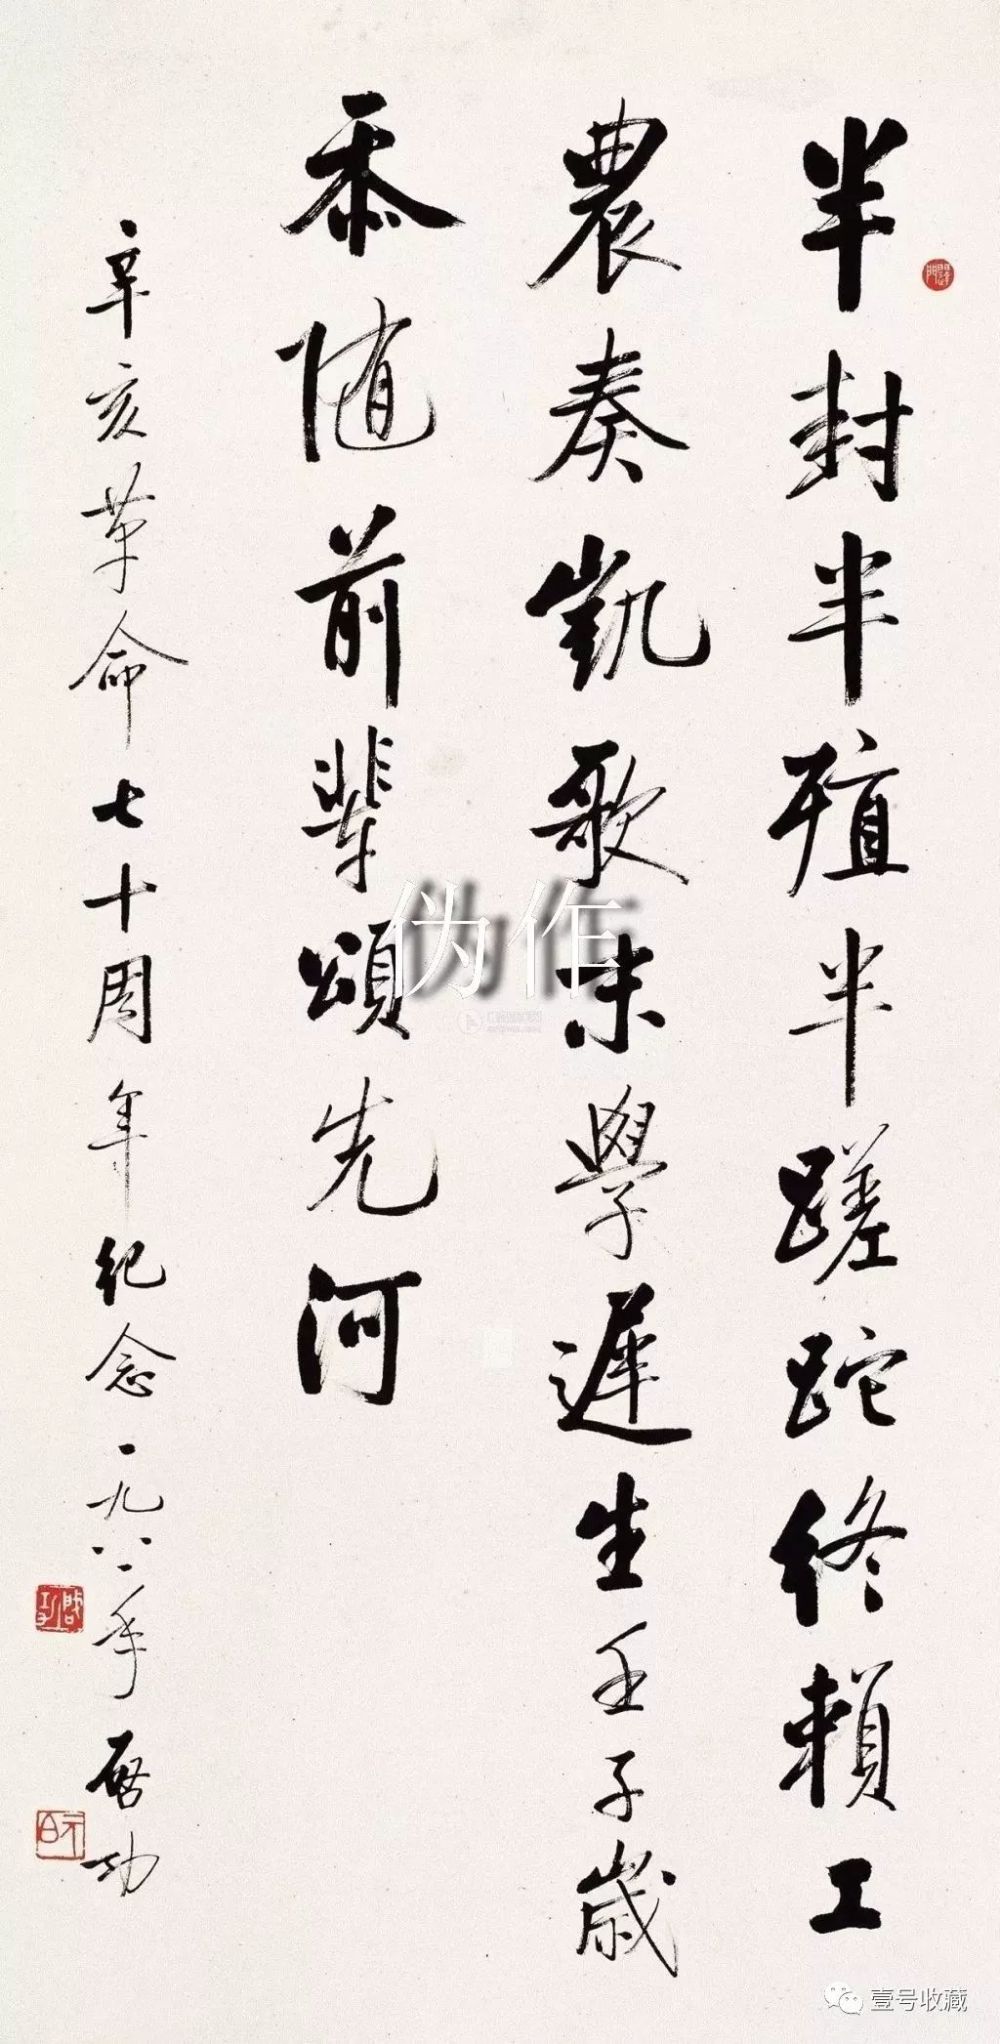 半封半殖半蹉跎終賴工
農奏凱歌末學遲生壬子歲
忝随前輩頌先河
辛亥革命七十周年纪念一九八一年启功
启功
元白
伪作
壹号收藏